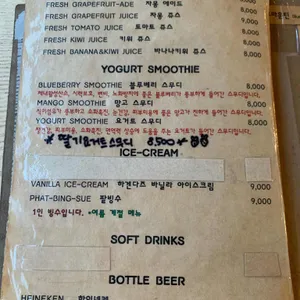 FRESH GRAPEFRUIT-ADE 자몽 에이드 8,000
FRESH GRAPEFRUIT JUICE 자몽 쥬스 8,000
FRESH TOMATO JUICE 토마토 쥬스 8,000
FRESH KIWI JUICE 키위 쥬스 8,000
FRESH BANANA&KIWI JUICE 바나나키위 쥬스 8,000
YOGURT SMOOTHIE
BLUEBERRY SMOOTHIE 블루베리 스무디 8,000
블루베리가 들어간 스무디입니다.
MANGO SMOOTHIE 망고 스무디 8,000
망고가 들어간 스무디입니다.
YOGURT SMOOTHIE 요거트 스무디 8,000
요거트가 들어간 스무디입니다.
* 딸기요거트스무디 8500 *
ICE-CREAM
VANILLA ICE-CREAM 하겐다즈 바닐라 아이스크림 9,000
PHAT-BING-SUE 팥빙수 9,000
1인 빙수입니다. *여름 계절 메뉴
SOFT DRINKS
BOTTLE BEER
HEINEKEN 하이네켄